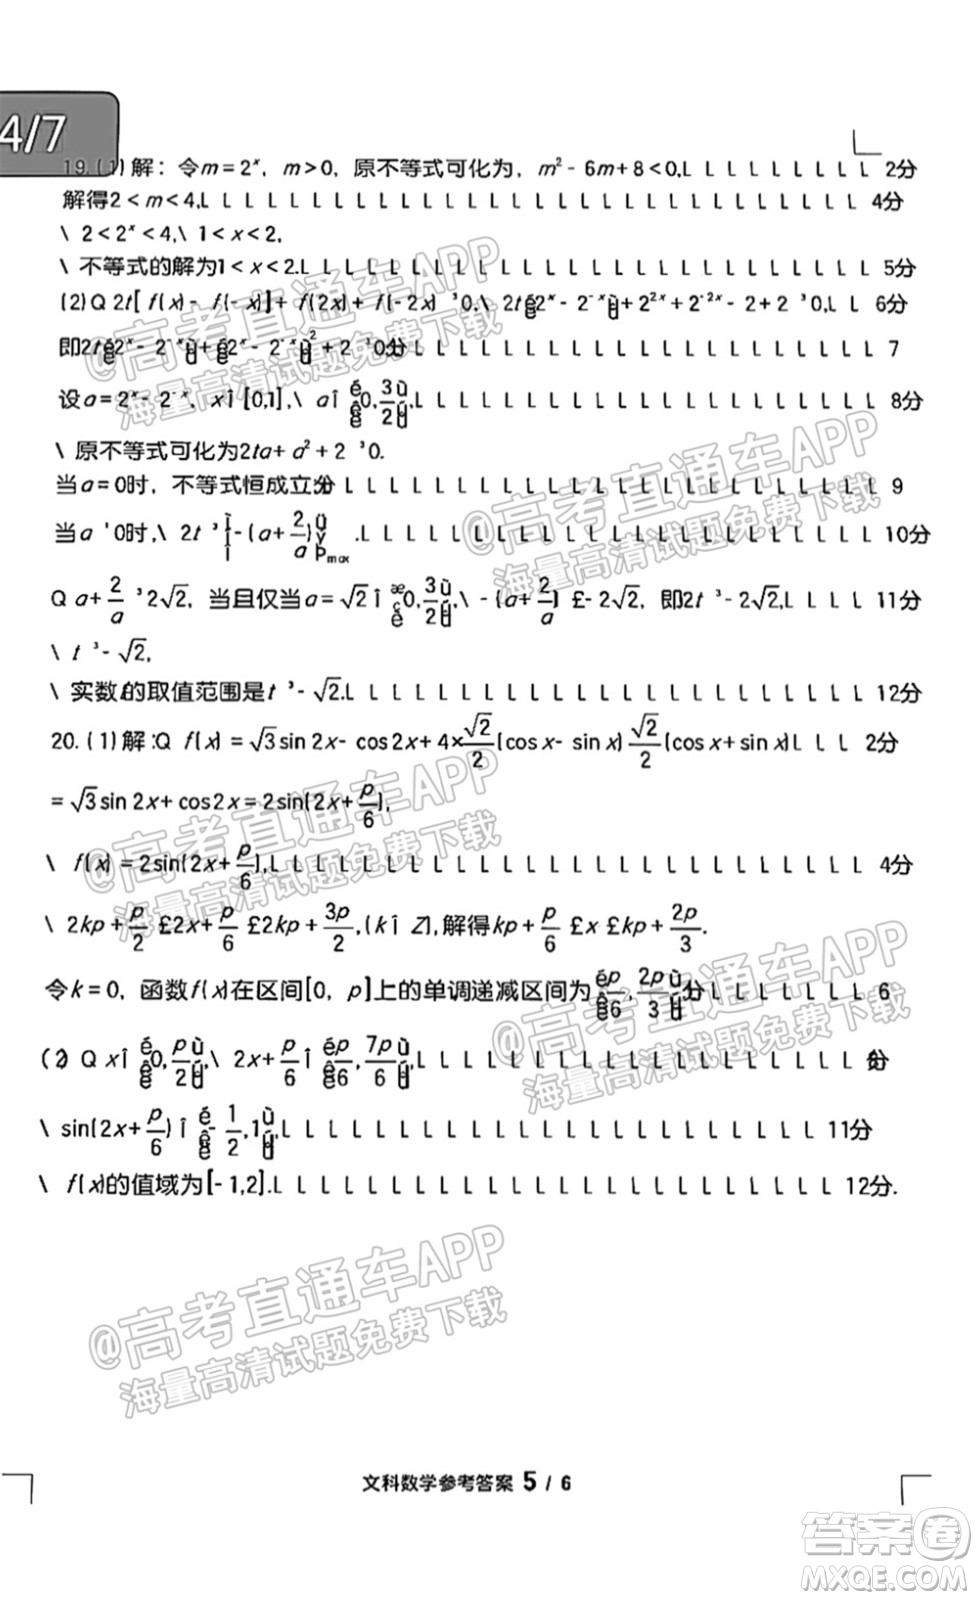 4/7
19.(1)解：令m=2ˣ，m>0，原不等式可化为，m²-6m+8<0,L L L L L L L L 2分
解得2<m<4,L L L L L L L L L L L L L L L L L L L L L L L L 4分
\ 2<2ˣ<4,\ 1<x<2,
\ 不等式的解为1<x<2.L L L L L L L L L L L L L L L L L L L L 5分
(2)Q 2t[f(x)-f(-x)]+f(2x)+f(-2x) ³0,\ 2té2ˣ-2⁻ˣù+2²ˣ+2⁻²ˣ-2+2 ³0,L L 6分
即2té2ˣ-2⁻ˣù+é2ˣ-2⁻ˣù²+2 ³0分L L L L L L L L L L L L L L L 7
设a=2ˣ-2⁻ˣ，xÎ[0,1],\ aÎ é0,3/2ù,L L L L L L L L L L L L L L L 8分
\ 原不等式可化为2ta+a²+2 ³0.
当a=0时，不等式恒成立分L L L L L L L L L L L L L L L L L L 9
当a ¹0时,\ 2t ³ ì-(a+2/a)ü max .L L L L L L L L L L L L L L L L L 10分
Q a+2/a ³2√2，当且仅当a=√2Î æ0,3/2ù,\ -(a+2/a) £-2√2，即2t ³-2√2,L L L L 11分
\ t ³-√2,
\ 实数t的取值范围是t ³-√2.L L L L L L L L L L L L L L L L L L 12分
20.(1)解:Q f(x)=√3sin2x-cos2x+4×√2/2(cosx-sinx)√2/2(cosx+sinx)L L L 2分
=√3sin2x+cos2x=2sin(2x+p/6),
\ f(x)=2sin(2x+p/6),L L L L L L L L L L L L L L L L L L L L 4分
\ 2kp+p/2 £2x+p/6 £2kp+3p/2,(kÎ Z),解得kp+p/6 £x £kp+2p/3.
令k=0，函数f(x)在区间[0，p]上的单调递减区间为ép/6,2p/3ù分L L L L L L L 6
(2) Q xÎ é0,p/2ù,\ 2x+p/6Î ép/6,7p/6ù,L L L L L L L L L L L L L L 分
\ sin(2x+p/6)Î é-1/2,1ù,L L L L L L L L L L L L L L L L L L 11分
\ f(x)的值域为[-1,2].L L L L L L L L L L L L L L L L L L L L 12分.
@高考直通车APP
海量高清试题免费下载
文科数学参考答案 5 / 6
答案卷
MXQE.COM